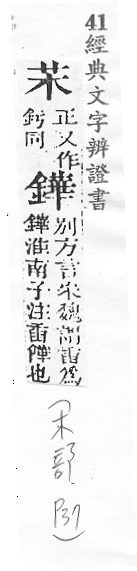 41 經典文字辨證書
茉 正又作
釫同
鏵 別方言宋魏謂臿爲
鏵淮南子注臿鏵也
(木部 137)